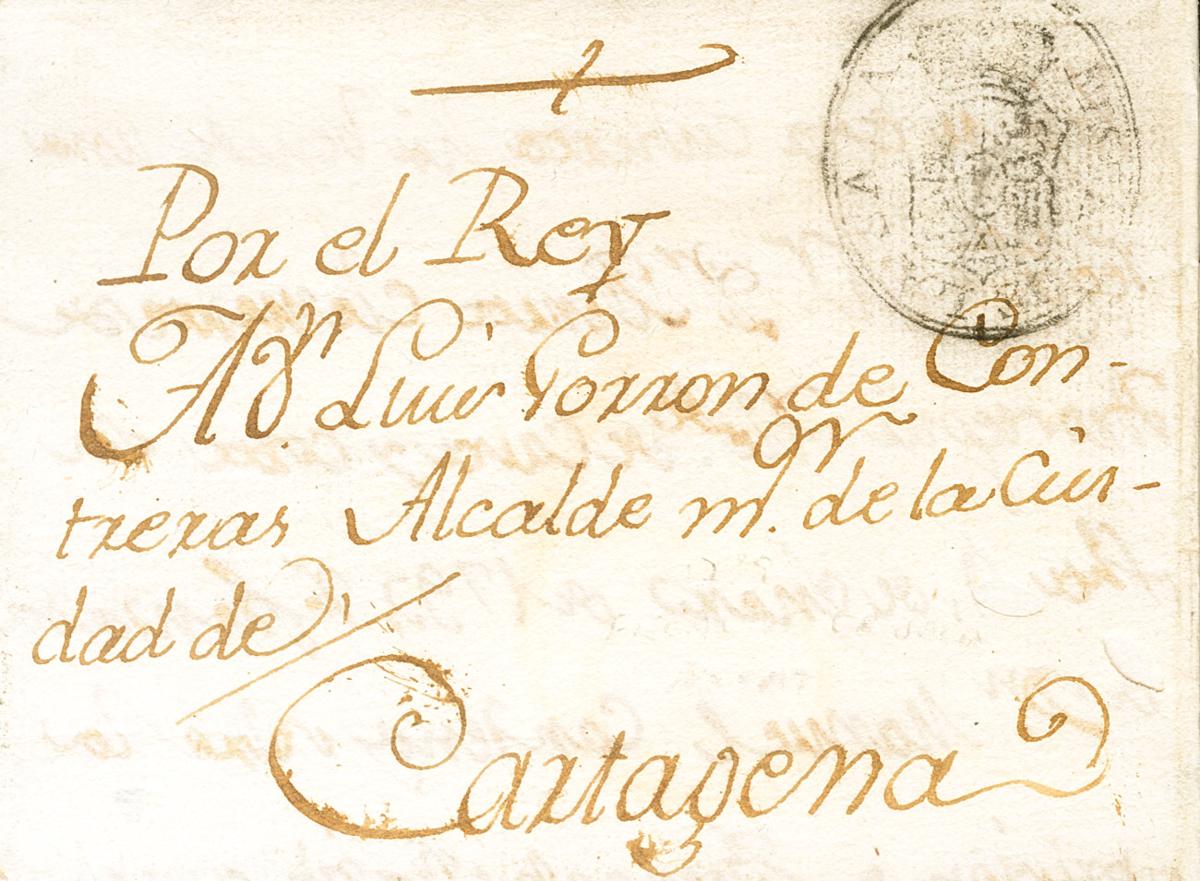 Por el Rey
A Dn Luis Gorron de Con-
treras Alcalde mr. de la Ciu-
dad de
Cartagena